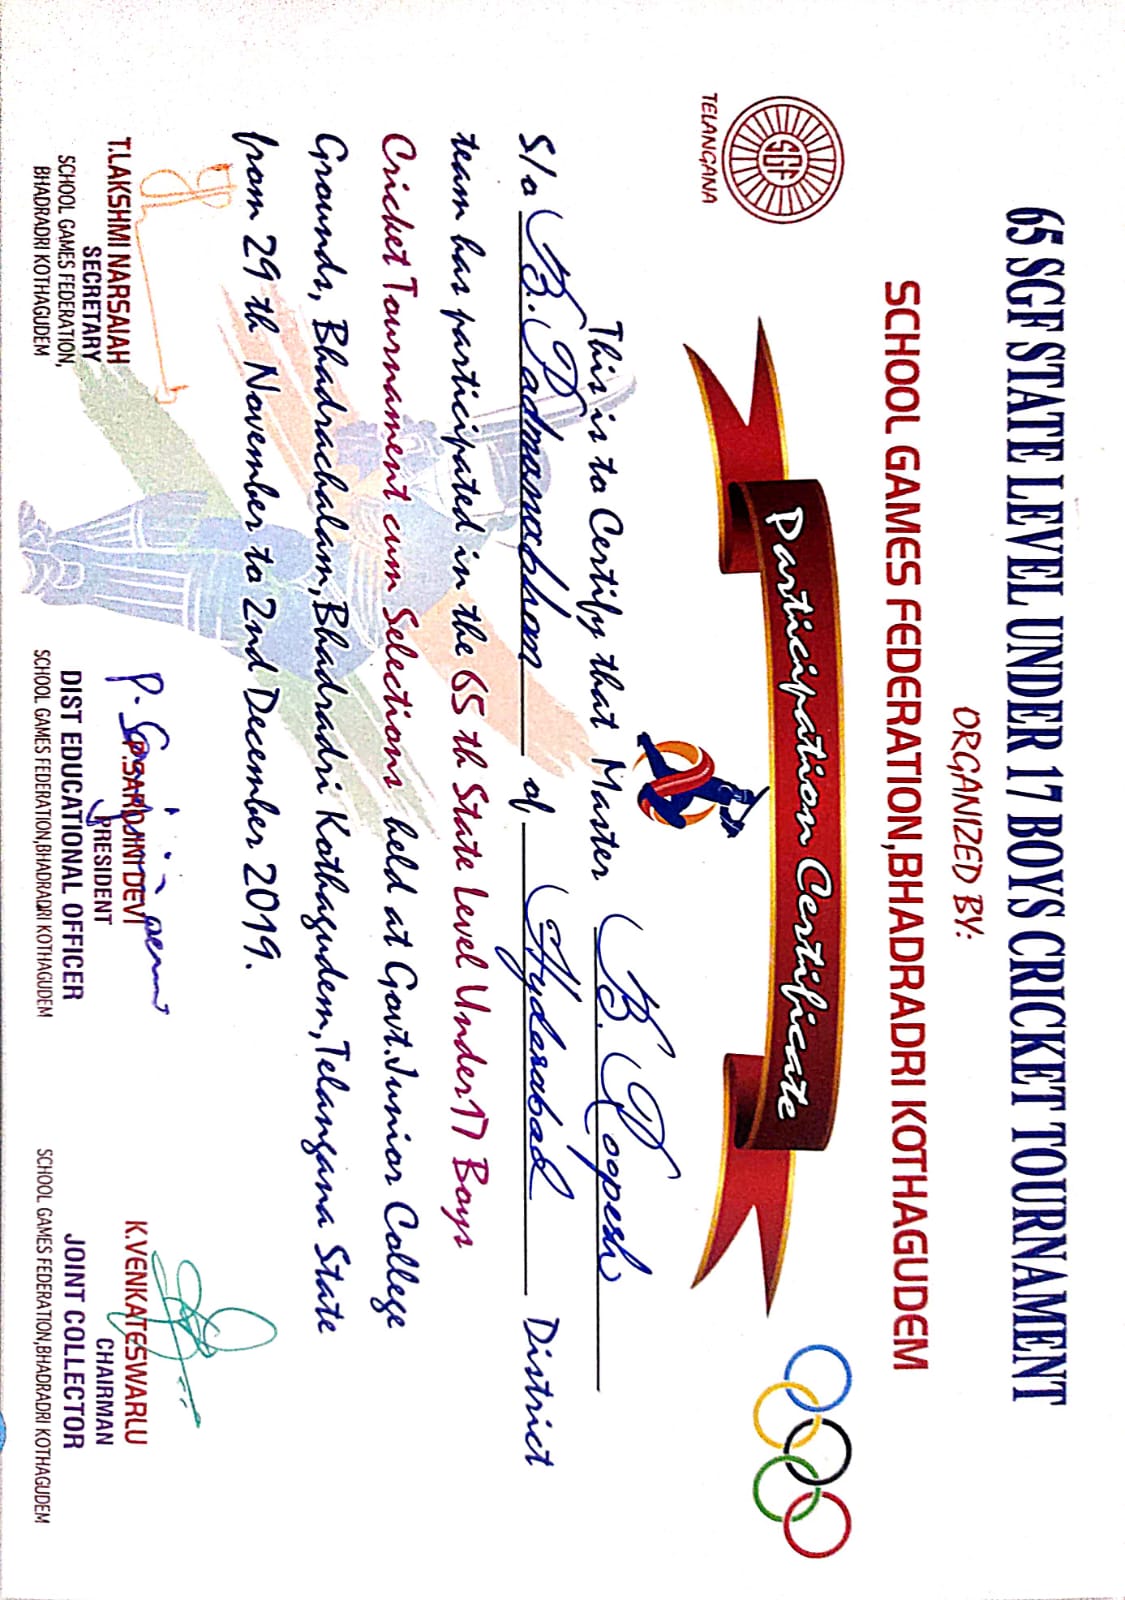 65 SGF STATE LEVEL UNDER 17 BOYS CRICKET TOURNAMENT
ORGANIZED BY:
SCHOOL GAMES FEDERATION,BHADRADRI KOTHAGUDEM
SGF
TELANGANA
Participation Certificate
This is to Certify that Master B. Roopesh
S/o B. Padmanabhan of Hyderabad District
team has participated in the 65 th State Level Under17 Boys
Cricket Tournament cum Selections held at Govt.Junior College
Grounds, Bhadrachalam,Bhadradri Kothagudem,Telangana State
from 29 th November to 2nd December 2019.
T.LAKSHMI NARSAIAH
SECRETARY
SCHOOL GAMES FEDERATION,
BHADRADRI KOTHAGUDEM
P.SAROJINI DEVI
PRESIDENT
DIST EDUCATIONAL OFFICER
SCHOOL GAMES FEDERATION,BHADRADRI KOTHAGUDEM
K.VENKATESWARLU
CHAIRMAN
JOINT COLLECTOR
SCHOOL GAMES FEDERATION,BHADRADRI KOTHAGUDEM